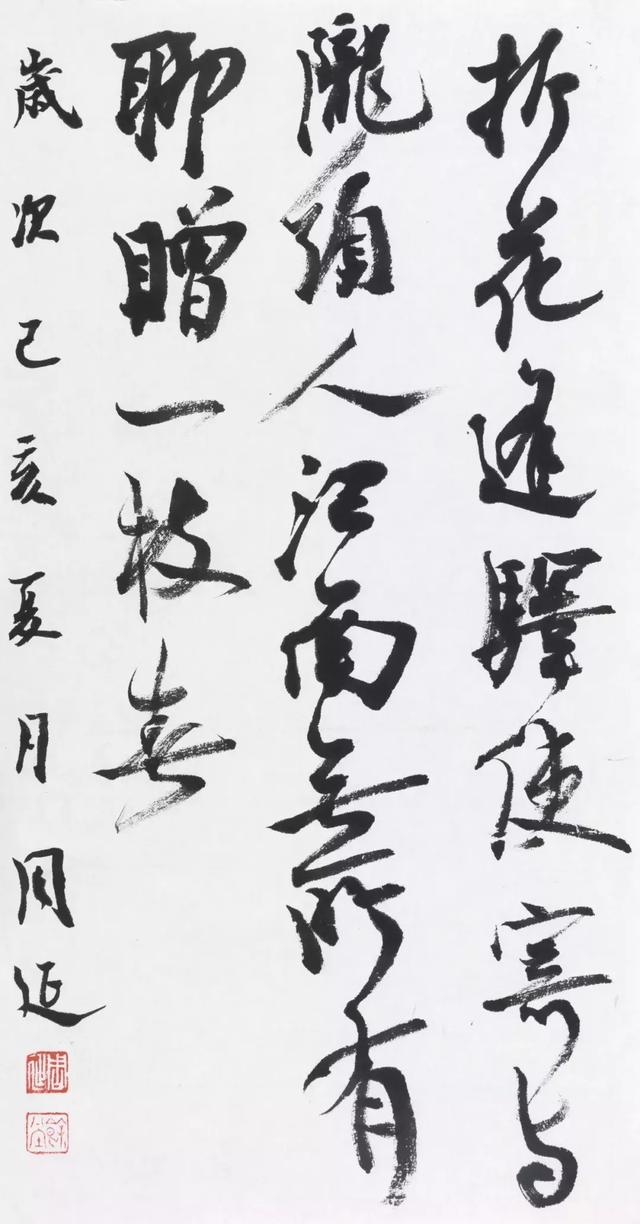 折花逢驛使寄与
隴頭人江南無所有
聊贈一枝春
歲次己亥夏月周延
周延